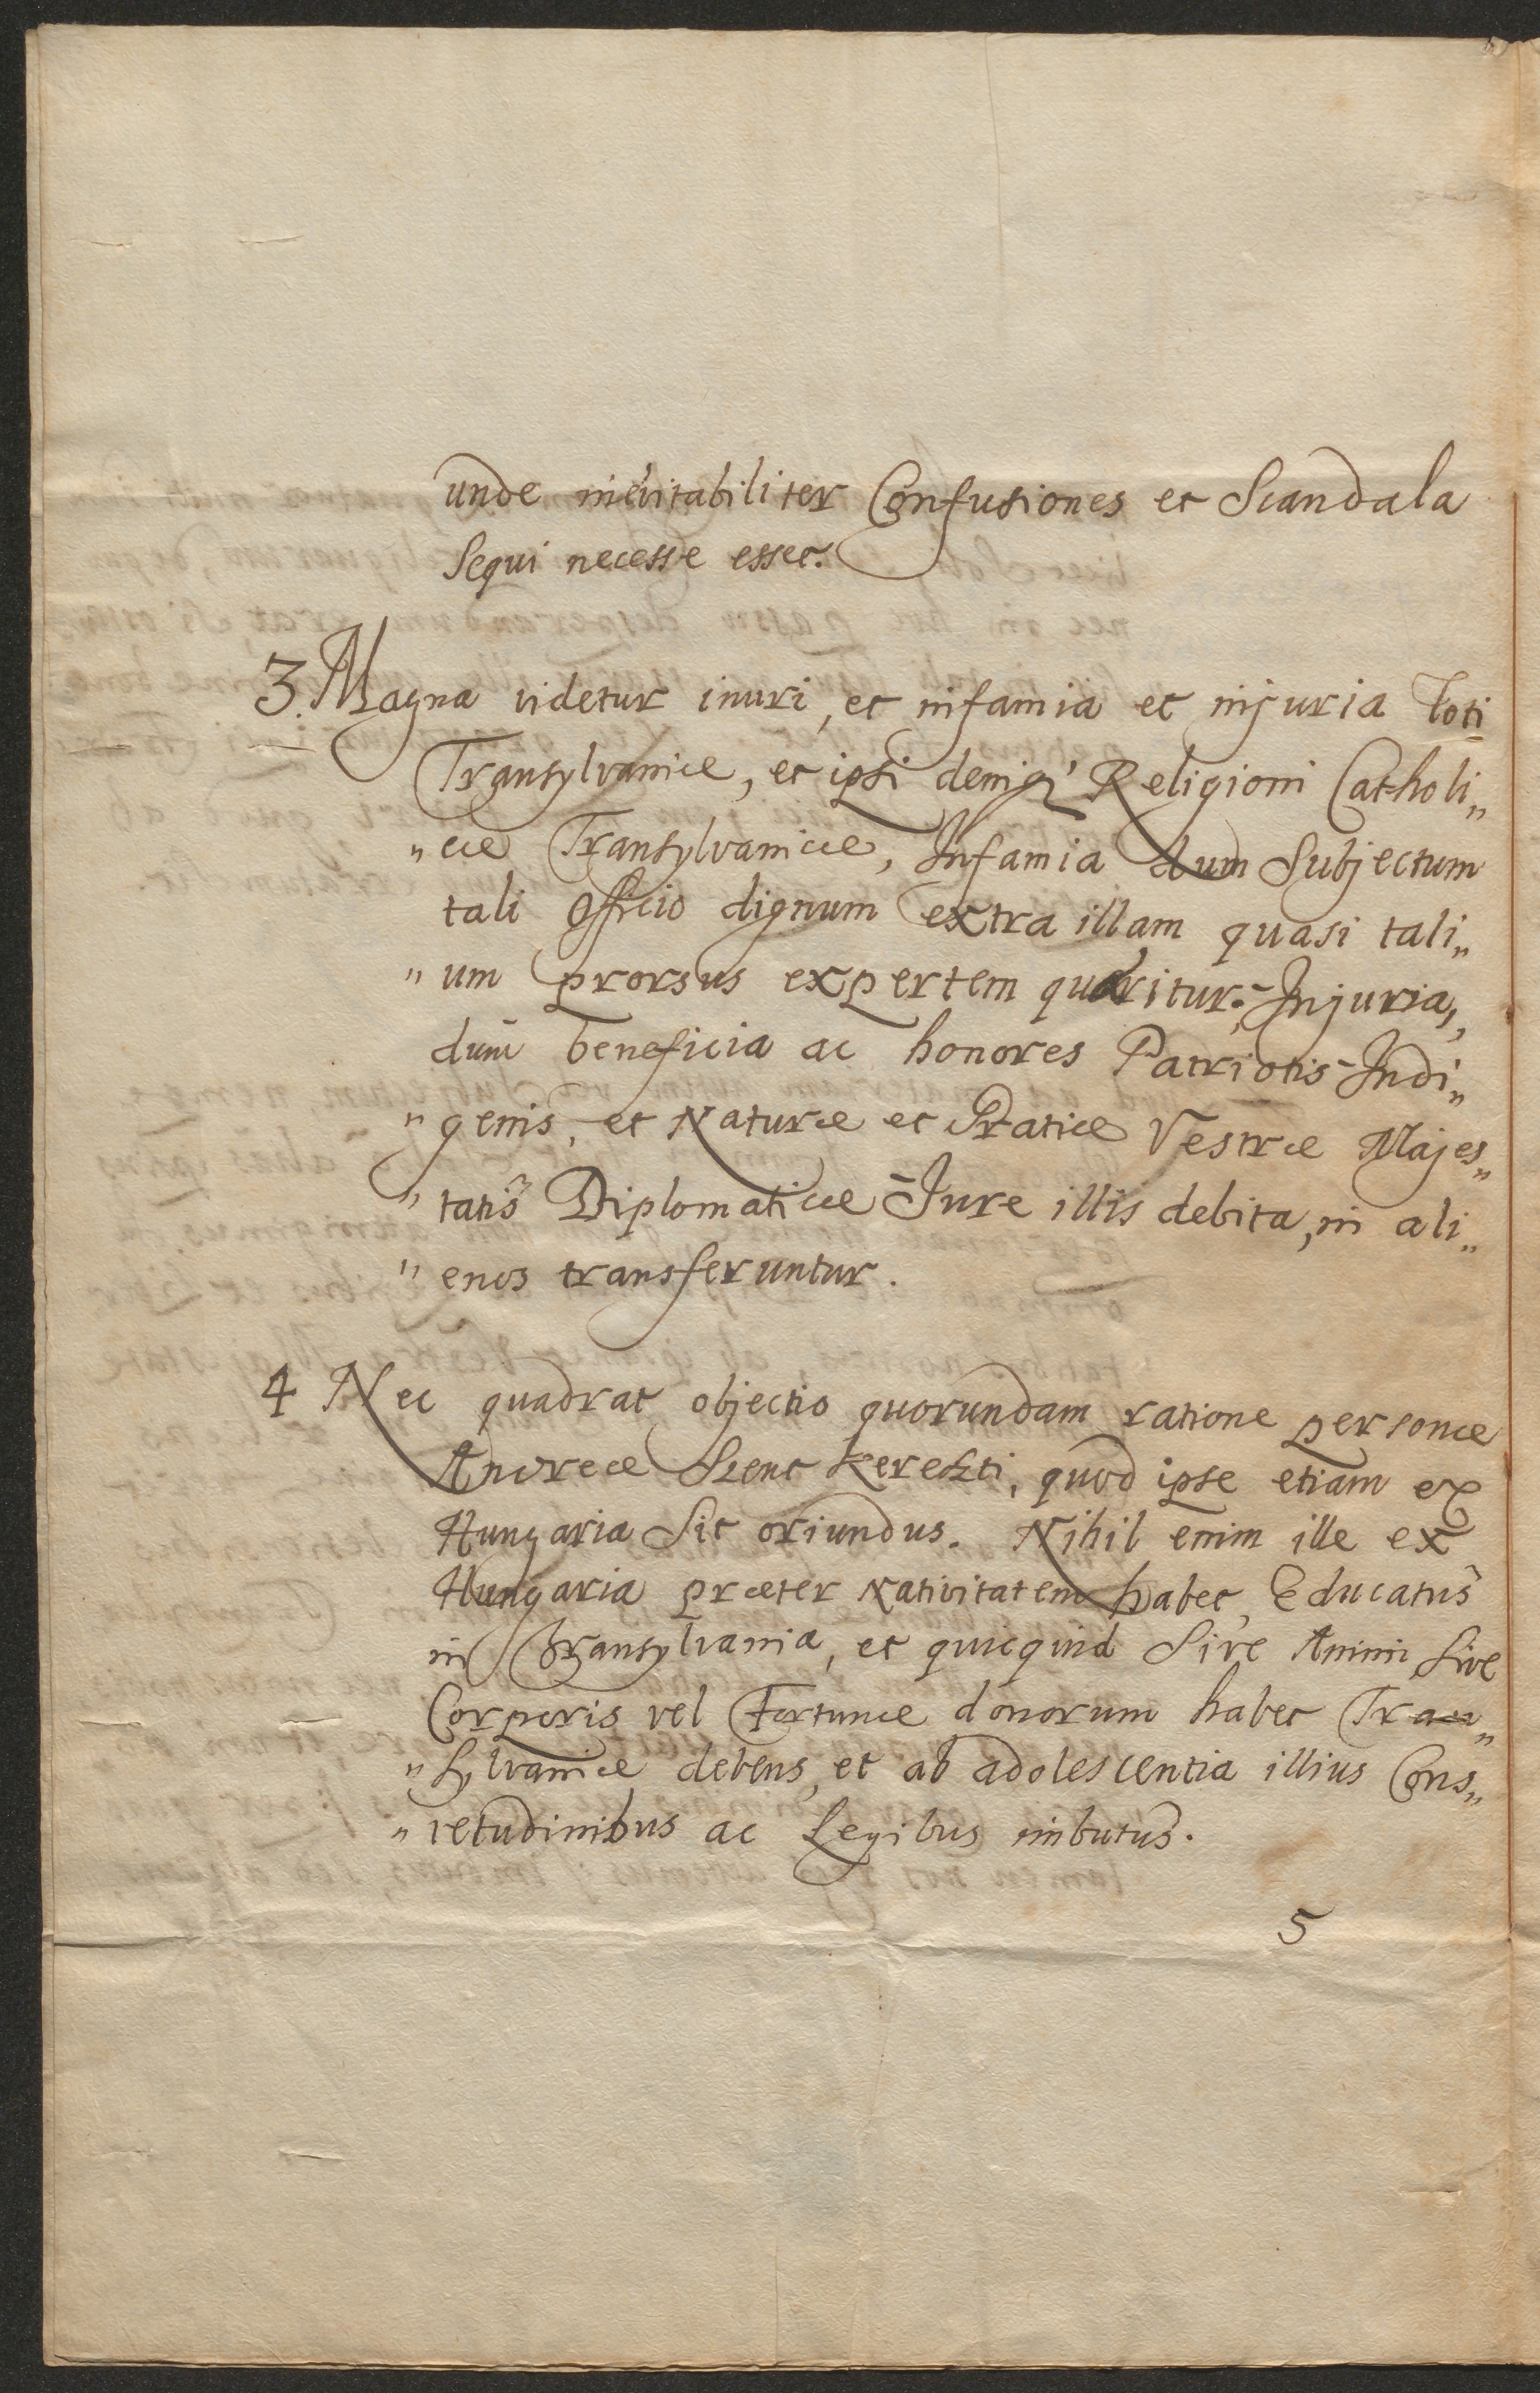 unde inevitabiliter Confusiones et Scandala
Sequi necesse esset.
3. Magna videtur inuri, et infamia et injuria Toti
Transylvaniæ, et ipsi deniq' Religioni Catholi„
„cæ Transylvanicæ, Infamia dum Subjectum
tali Officio dignum extra illam quasi tali„
„um prorsus expertem quæritur; Injuria,
dum beneficia ac honores Patriotis Indi„
„genis, et Naturæ et Gratiæ Vestræ Majes„
„tatis Diplomaticæ Jure illis debita, in ali„
„enos transferuntur.
4 Nec quadrat objectio quorundam ratione personæ
Andreæ Szent Kereszti, quod ipse etiam ex
Hungaria Sit oriundus. Nihil enim ille ex
Hungaria præter Nativitatem habet, Educatus
in Transylvania, et quicquid Sive Animi Sive
Corporis vel Fortunæ donorum habet Tran„
„sylvaniæ debens, et ab adolescentia illius Cons„
„vetudinibus ac Legibus imbutus.
5